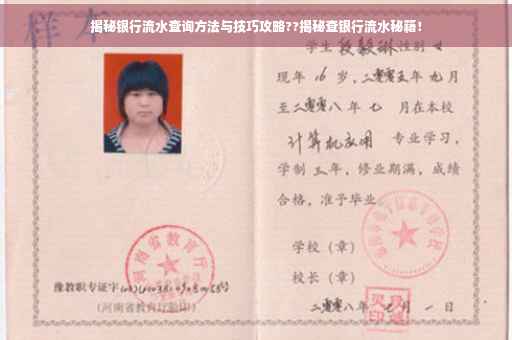 揭秘银行流水查询方法与技巧攻略??揭秘查银行流水秘籍!
样本
学生 段毅琳 性别 女
现年 16 岁,二零零五年 九月
至二零零八年 七 月在本校
计算机应用 专业学习,
学制 三年,修业期满,成绩
合格,准予毕业
学校(章)
校长(章)
河南省教育厅
豫教职专证字
(河南省教育厅验印)
二零零八年 七 月 一 日